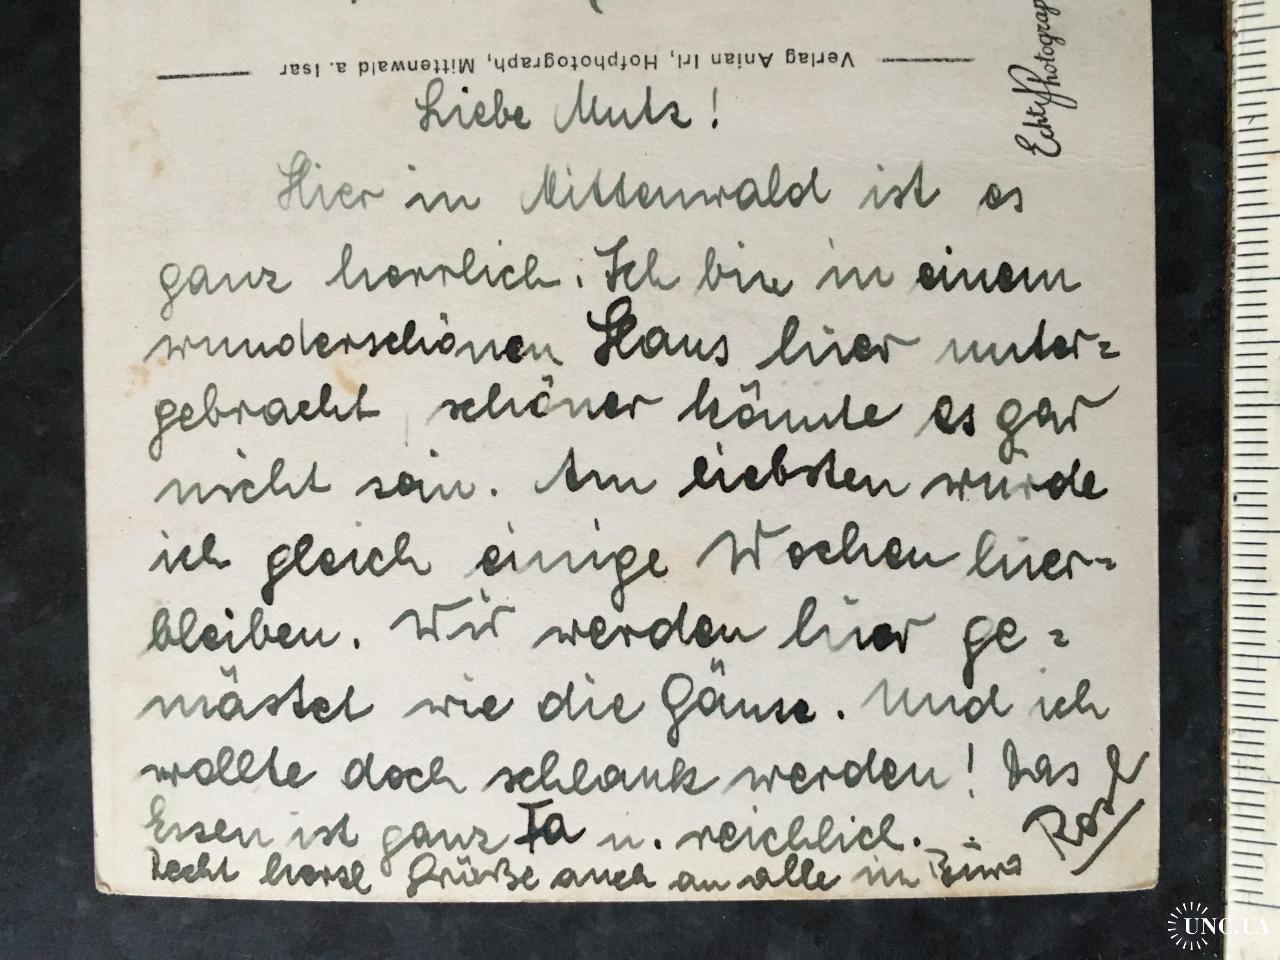 Verlag Anian Irl, Hofphotograph, Mittenwald a. Isar
Liebe Mutz!
Hier in Mittenwald ist es
ganz herrlich. Ich bin in einem
wunderschönen Haus hier unter=
gebracht schöner könnte es gar
nicht sein. Am liebsten würde
ich gleich einige Wochen hier=
bleiben. Wir werden hier ge=
mästet wie die Gänse. Und ich
wollte doch schlank werden! Das
Essen ist ganz Ia u. reichlich.
Recht herzl Grüße auch an alle im Büro
Rosl
Echte Photograp
UNC.UA